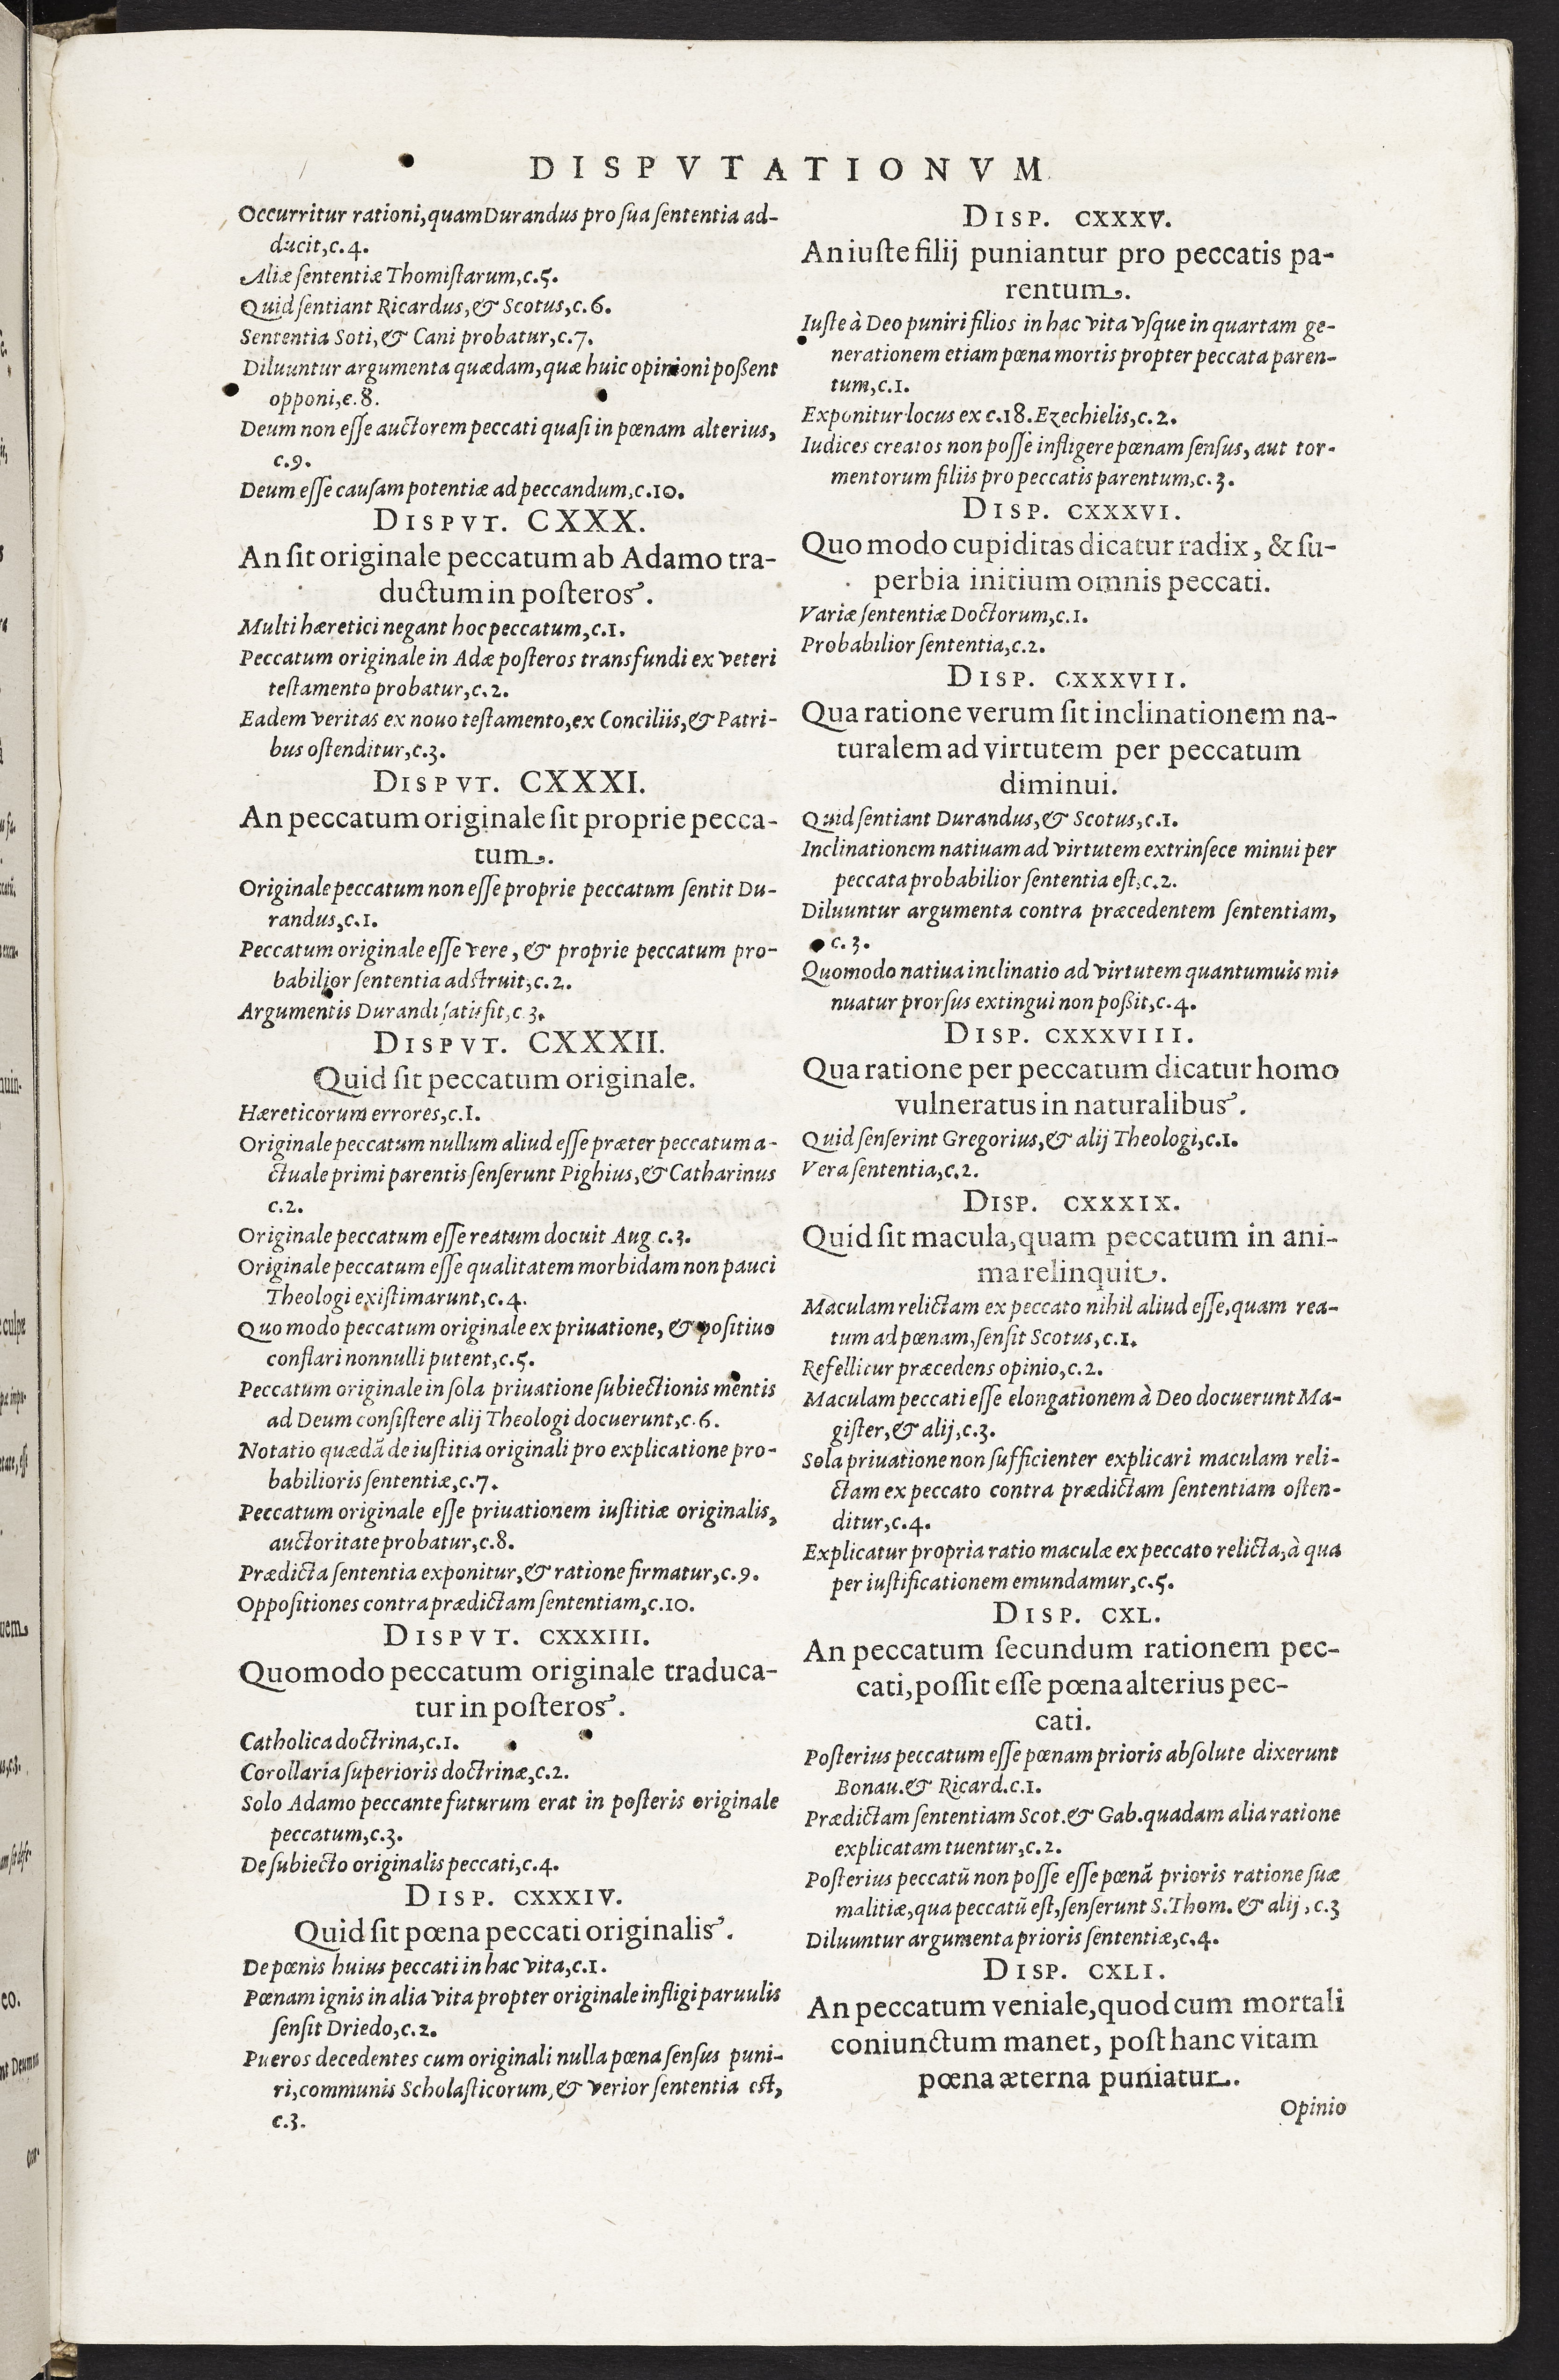 DISPVTATIONVM
Occurritur rationi, quam Durandus pro ſua ſententia ad-
ducit, c. 4.
Aliæ ſententiæ Thomiſtarum, c. 5.
Quid ſentiant Ricardus, & Scotus, c. 6.
Sententia Soti, & Cani probatur, c. 7.
Diluuntur argumenta quædam, quæ huic opinioni poßent
opponi, c. 8.
Deum non eſſe auctorem peccati quaſi in pœnam alterius,
c. 9.
Deum eſſe cauſam potentiæ ad peccandum, c. 10.
DISPVT. CXXX.
An ſit originale peccatum ab Adamo tra-
ductum in poſteros.
Multi hæretici negant hoc peccatum, c. 1.
Peccatum originale in Adæ poſteros transfundi ex veteri
teſtamento probatur, c. 2.
Eadem veritas ex nouo teſtamento, ex Conciliis, & Patri-
bus oſtenditur, c. 3.
DISPVT. CXXXI.
An peccatum originale ſit proprie pecca-
tum.
Originale peccatum non eſſe proprie peccatum ſentit Du-
randus, c. 1.
Peccatum originale eſſe vere, & proprie peccatum pro-
babilior ſententia adſtruit, c. 2.
Argumentis Durandi ſatisfit, c. 3.
DISPVT. CXXXII.
Quid ſit peccatum originale.
Hæreticorum errores, c. 1.
Originale peccatum nullum aliud eſſe præter peccatum a-
ctuale primi parentis ſenſerunt Pighius, & Catharinus
c. 2.
Originale peccatum eſſe reatum docuit Aug. c. 3.
Originale peccatum eſſe qualitatem morbidam non pauci
Theologi exiſtimarunt, c. 4.
Quo modo peccatum originale ex priuatione, & poſitiuo
conflari nonnulli putent, c. 5.
Peccatum originale in ſola priuatione ſubiectionis mentis
ad Deum conſiſtere alij Theologi docuerunt, c. 6.
Notatio quædã de iuſtitia originali pro explicatione pro-
babilioris ſententiæ, c. 7.
Peccatum originale eſſe priuationem iuſtitiæ originalis,
auctoritate probatur, c. 8.
Prædicta ſententia exponitur, & ratione firmatur, c. 9.
Oppoſitiones contra prædictam ſententiam, c. 10.
DISPVT. CXXXIII.
Quomodo peccatum originale traduca-
tur in poſteros.
Catholica doctrina, c. 1.
Corollaria ſuperioris doctrinæ, c. 2.
Solo Adamo peccante futurum erat in poſteris originale
peccatum, c. 3.
De ſubiecto originalis peccati, c. 4.
DISP. CXXXIV.
Quid ſit pœna peccati originalis.
De pœnis huius peccati in hac vita, c. 1.
Pœnam ignis in alia vita propter originale infligi paruulis
ſenſit Driedo, c. 2.
Pueros decedentes cum originali nulla pœna ſenſus puni-
ri, communis Scholaſticorum, & verior ſententia eſt,
c. 3.
DISP. CXXXV.
An iuſte filij puniantur pro peccatis pa-
rentum.
Iuſte à Deo puniri filios in hac vita vſque in quartam ge-
nerationem etiam pœna mortis propter peccata paren-
tum, c. 1.
Exponitur locus ex c. 18. Ezechielis, c. 2.
Iudices creatos non poſſe infligere pœnam ſenſus, aut tor-
mentorum filiis pro peccatis parentum, c. 3.
DISP. CXXXVI.
Quo modo cupiditas dicatur radix, & ſu-
perbia initium omnis peccati.
Variæ ſententiæ Doctorum, c. 1.
Probabilior ſententia, c. 2.
DISP. CXXXVII.
Qua ratione verum ſit inclinationem na-
turalem ad virtutem per peccatum
diminui.
Quid ſentiant Durandus, & Scotus, c. 1.
Inclinationem natiuam ad virtutem extrinſece minui per
peccata probabilior ſententia eſt, c. 2.
Diluuntur argumenta contra præcedentem ſententiam,
c. 3.
Quomodo natiua inclinatio ad virtutem quantumuis mi-
nuatur prorſus extingui non poßit, c. 4.
DISP. CXXXVIII.
Qua ratione per peccatum dicatur homo
vulneratus in naturalibus.
Quid ſenſerint Gregorius, & alij Theologi, c. 1.
Vera ſententia, c. 2.
DISP. CXXXIX.
Quid ſit macula, quam peccatum in ani-
ma relinquit.
Maculam relictam ex peccato nihil aliud eſſe, quam rea-
tum ad pœnam, ſenſit Scotus, c. 1.
Refellitur præcedens opinio, c. 2.
Maculam peccati eſſe elongationem à Deo docuerunt Ma-
giſter, & alij, c. 3.
Sola priuatione non ſufficienter explicari maculam reli-
ctam ex peccato contra prædictam ſententiam oſten-
ditur, c. 4.
Explicatur propria ratio maculæ ex peccato relicta, à qua
per iuſtificationem emundamur, c. 5.
DISP. CXL.
An peccatum ſecundum rationem pec-
cati, poſſit eſſe pœna alterius pec-
cati.
Poſterius peccatum eſſe pœnam prioris abſolute dixerunt
Bonau. & Ricard. c. 1.
Prædictam ſententiam Scot. & Gab. quadam alia ratione
explicatam tuentur, c. 2.
Poſterius peccatũ non poſſe eſſe pœnã prioris ratione ſuæ
malitiæ, qua peccatũ eſt, ſenſerunt S. Thom. & alij, c. 3
Diluuntur argumenta prioris ſententiæ, c. 4.
DISP. CXLI.
An peccatum veniale, quod cum mortali
coniunctum manet, poſt hanc vitam
pœna æterna puniatur.
Opinio